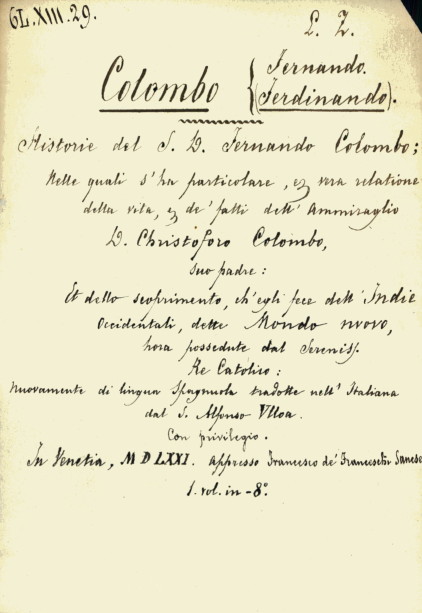 GL.XIII.29.
L. Z.
Colombo { Fernando.
(Ferdinando).
Historie del S. D. Fernando Colombo;
Nelle quali s'ha particolare, & vera relatione
della vita, & de' fatti dell' Ammiraglio
D. Christoforo Colombo,
suo padre:
Et dello scoprimento, ch'egli fece dell' Indie
Occidentali, dette Mondo nuovo,
hora possedute dal Sereniss.
Re Catolico:
Nuovamente di lingua Spagnuola tradotte nell' Italiana
dal S. Alfonso Vlloa.
Con privilegio.
In Venetia, M D LXXI. Appresso Francesco de' Franceschi Sanese
1. vol. in-8º.